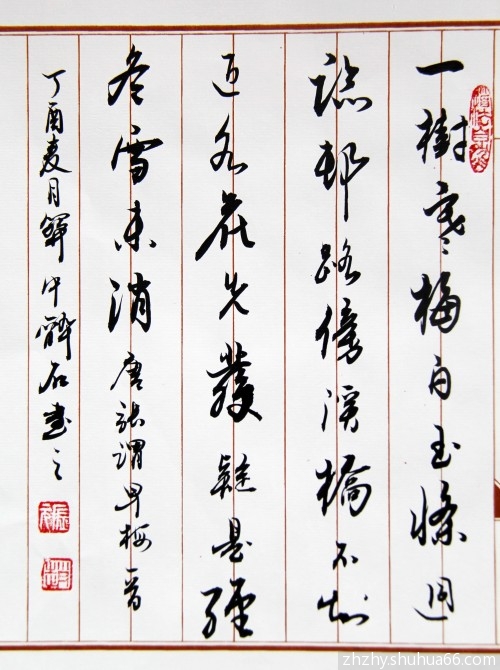 一樹寒梅白玉條迥
臨邨路傍溪橋不知
近水花先發疑是經
冬雪未消 唐張謂早梅一首
丁酉月中醉石書之
zhzhyshuhua66.com